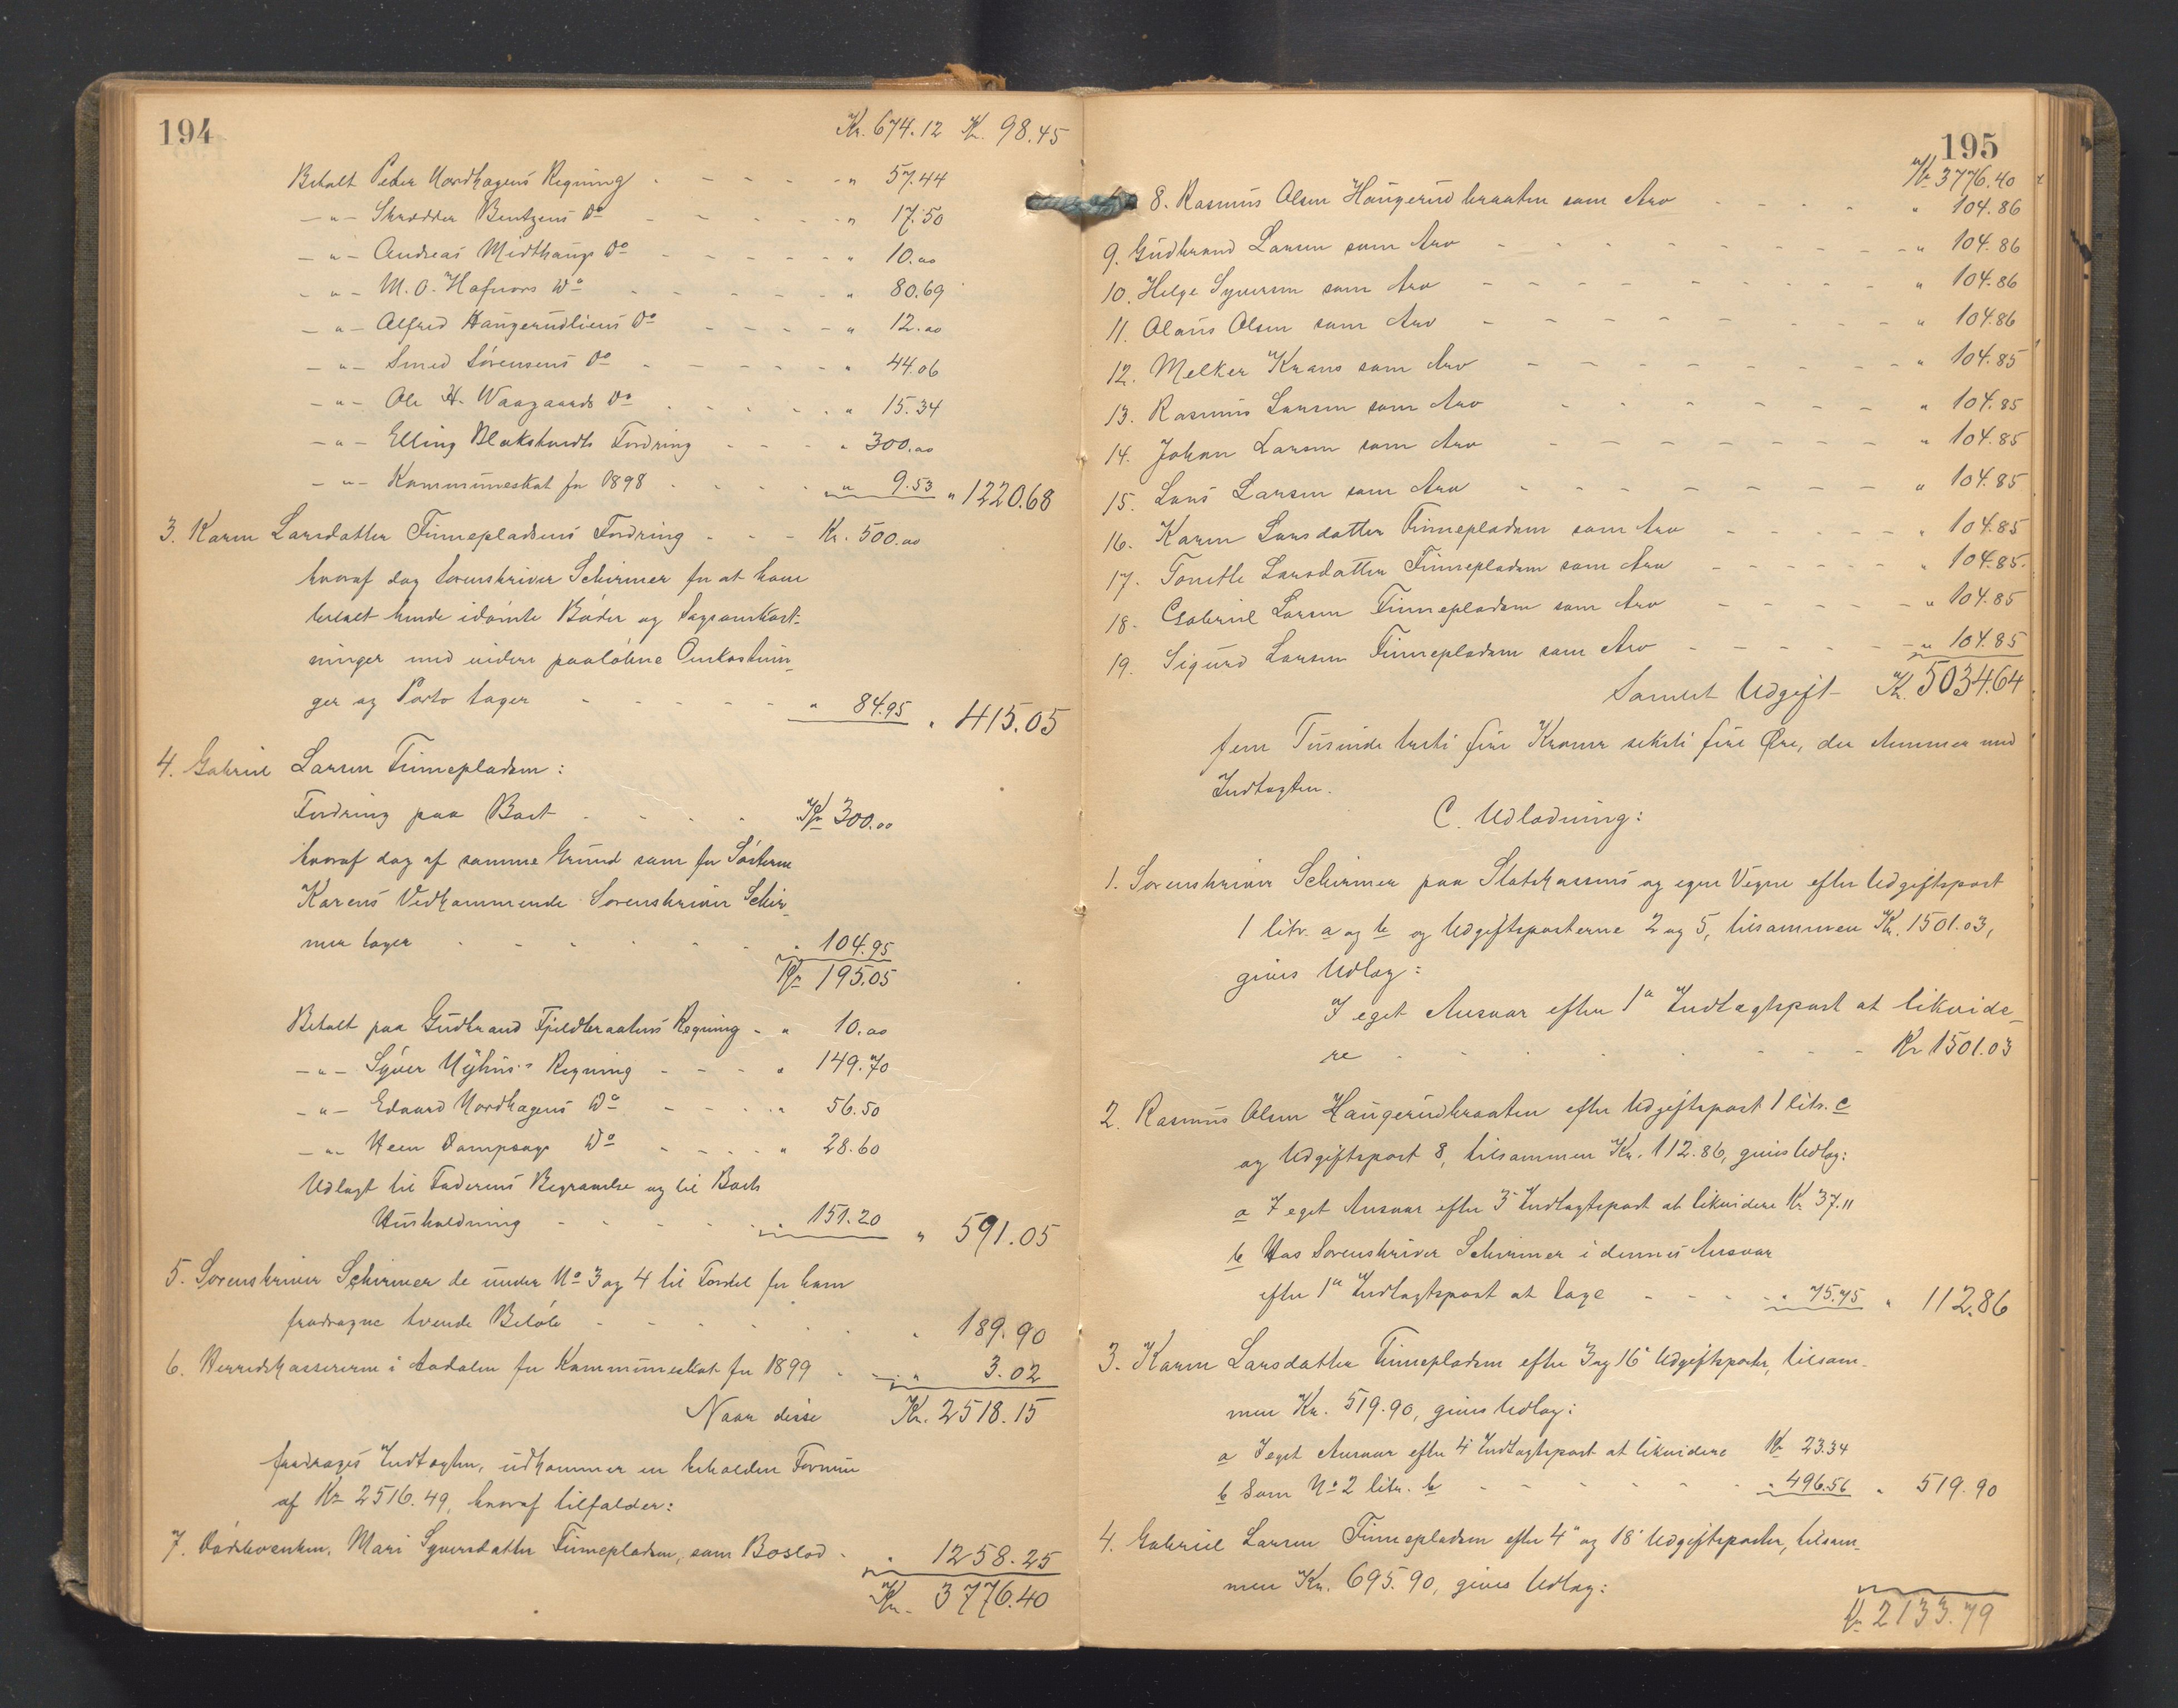 194
Kr. 674.12 Kr. 98.45
Betalt Peder Nordhagens Regning - - - - - " 57.44
- " - Skrædder Bentzens Do - - - - - " 17.50
- " - Andreas Midthaugs Do - - - - - " 10.00
- " - M. O. Hafnors Do - - - - - " 80.69
- " - Alfred Haugerudliens Do - - - - " 12.00
- " - Smed Sörensens Do - - - - - " 44.06
- " - Ole H. Waagaards Do - - - - - " 15.34
- " - Elling Blakstvedts Fordring - - - " 300.00
- " - Kommuneskat for 1898 - - - - " 9.53 " 1220.68
3. Karen Larsdatter Finnepladsens Fordring - - - Kr. 500.00
hvoraf dog Sorenskriver Schirmer for at have
betalt hende idömte Böder og Sagsomkost-
ninger med videre paalöbne Omkostnin-
ger og Porto tager - - - - - " 84.95 " 415.05
4. Gabriel Larsen Finnepladsen:
Fordring paa Boet - - - - Kr 300.00
hvoraf dog af samme Grund som for Sösteren
Karens Vedkommende Sorenskriver Schir-
mer tager - - - - - - " 104.95
Kr 195.05
Betalt paa Gudbrand Fjeldbraatens Regning - " 10.00
- " - Syver Nyhus's Regning - - - " 149.70
- " - Edvard Nordhagens Do - - - - " 56.50
- " - Heen Dampsags Do - - - - " 28.60
Udlagt til Faderens Begravelse og til Boets
Husholdning - - - - - " 151.20 " 591.05
5. Sorenskriver Schirmer de under No 3 og 4 til Fordel for ham
fradragne tvende Belöb - - - - - " 189.90
6. Herredskassereren i Aadalen for Kommuneskat for 1899 - - " 3.02
Naar disse Kr. 2518.15
fradrages Indtægten, udkommer en beholden Formue
af Kr 2516.49, hvoraf tilfalder:
7. Dödsboenken, Mari Syversdatter Finnepladsen, som Boslod - " 1258.25
Kr. 3776.40
195
Kr 3776.40
8. Rasmus Olsen Haugerudbraaten som Arv - - - - " 104.86
9. Gudbrand Larsen som Arv - - - - - - - " 104.86
10. Helge Syversen som Arv - - - - - - - " 104.86
11. Olaus Olsen som Arv - - - - - - - " 104.86
12. Melker Krans som Arv - - - - - - - " 104.85
13. Rasmus Larsen som Arv - - - - - - " 104.85
14. Johan Larsen som Arv - - - - - - - " 104.85
15. Lars Larsen som Arv - - - - - - - " 104.85
16. Karen Larsdatter Finnepladsen som Arv - - - - - " 104.85
17. Tonette Larsdatter Finnepladsen som Arv - - - - - " 104.85
18. Gabriel Larsen Finnepladsen som Arv - - - - - " 104.85
19. Sigurd Larsen Finnepladsen som Arv - - - - - " 104.85
Samlet Udgift Kr. 5034.64
fem Tusinde treti fire Kroner seksti fire Øre, der stemmer med
Indtægten.
C. Udlodning:
1. Sorenskriver Schirmer paa Statskassens og egne Vegne efter Udgiftspost
1 litr. a og b og Udgiftsposterne 2 og 5, tilsammen Kr. 1501.03,
gives Udlæg:
I eget Ansvar efter 1ste Indtægtspost at likvide-
re - - - - - - - - Kr 1501.03
2. Rasmus Olsen Haugerudbraaten efter Udgiftspost 1 litr. c
og Udgiftspost 8, tilsammen Kr. 112.86, gives Udlæg:
a I eget Ansvar efter 3' Indtægtspost at likvidere Kr 37.11
b Hos Sorenskriver Schirmer i dennes Ansvar
efter 1ste Indtægtspost at tage - - - - " 75.75 " 112.86
3. Karen Larsdatter Finnepladsen efter 3 og 16' Udgiftsposter, tilsam-
men Kr. 519.90, gives Udlæg:
a I eget Ansvar efter 4' Indtægtspost at likvidere Kr 23.34
b Som No 2 litr. b - - - - - - " 496.56 " 519.90
4. Gabriel Larsen Finnepladsen efter 4" og 18' Udgiftsposter, tilsam-
men Kr. 695.90, gives Udlæg:
Kr 2133.79